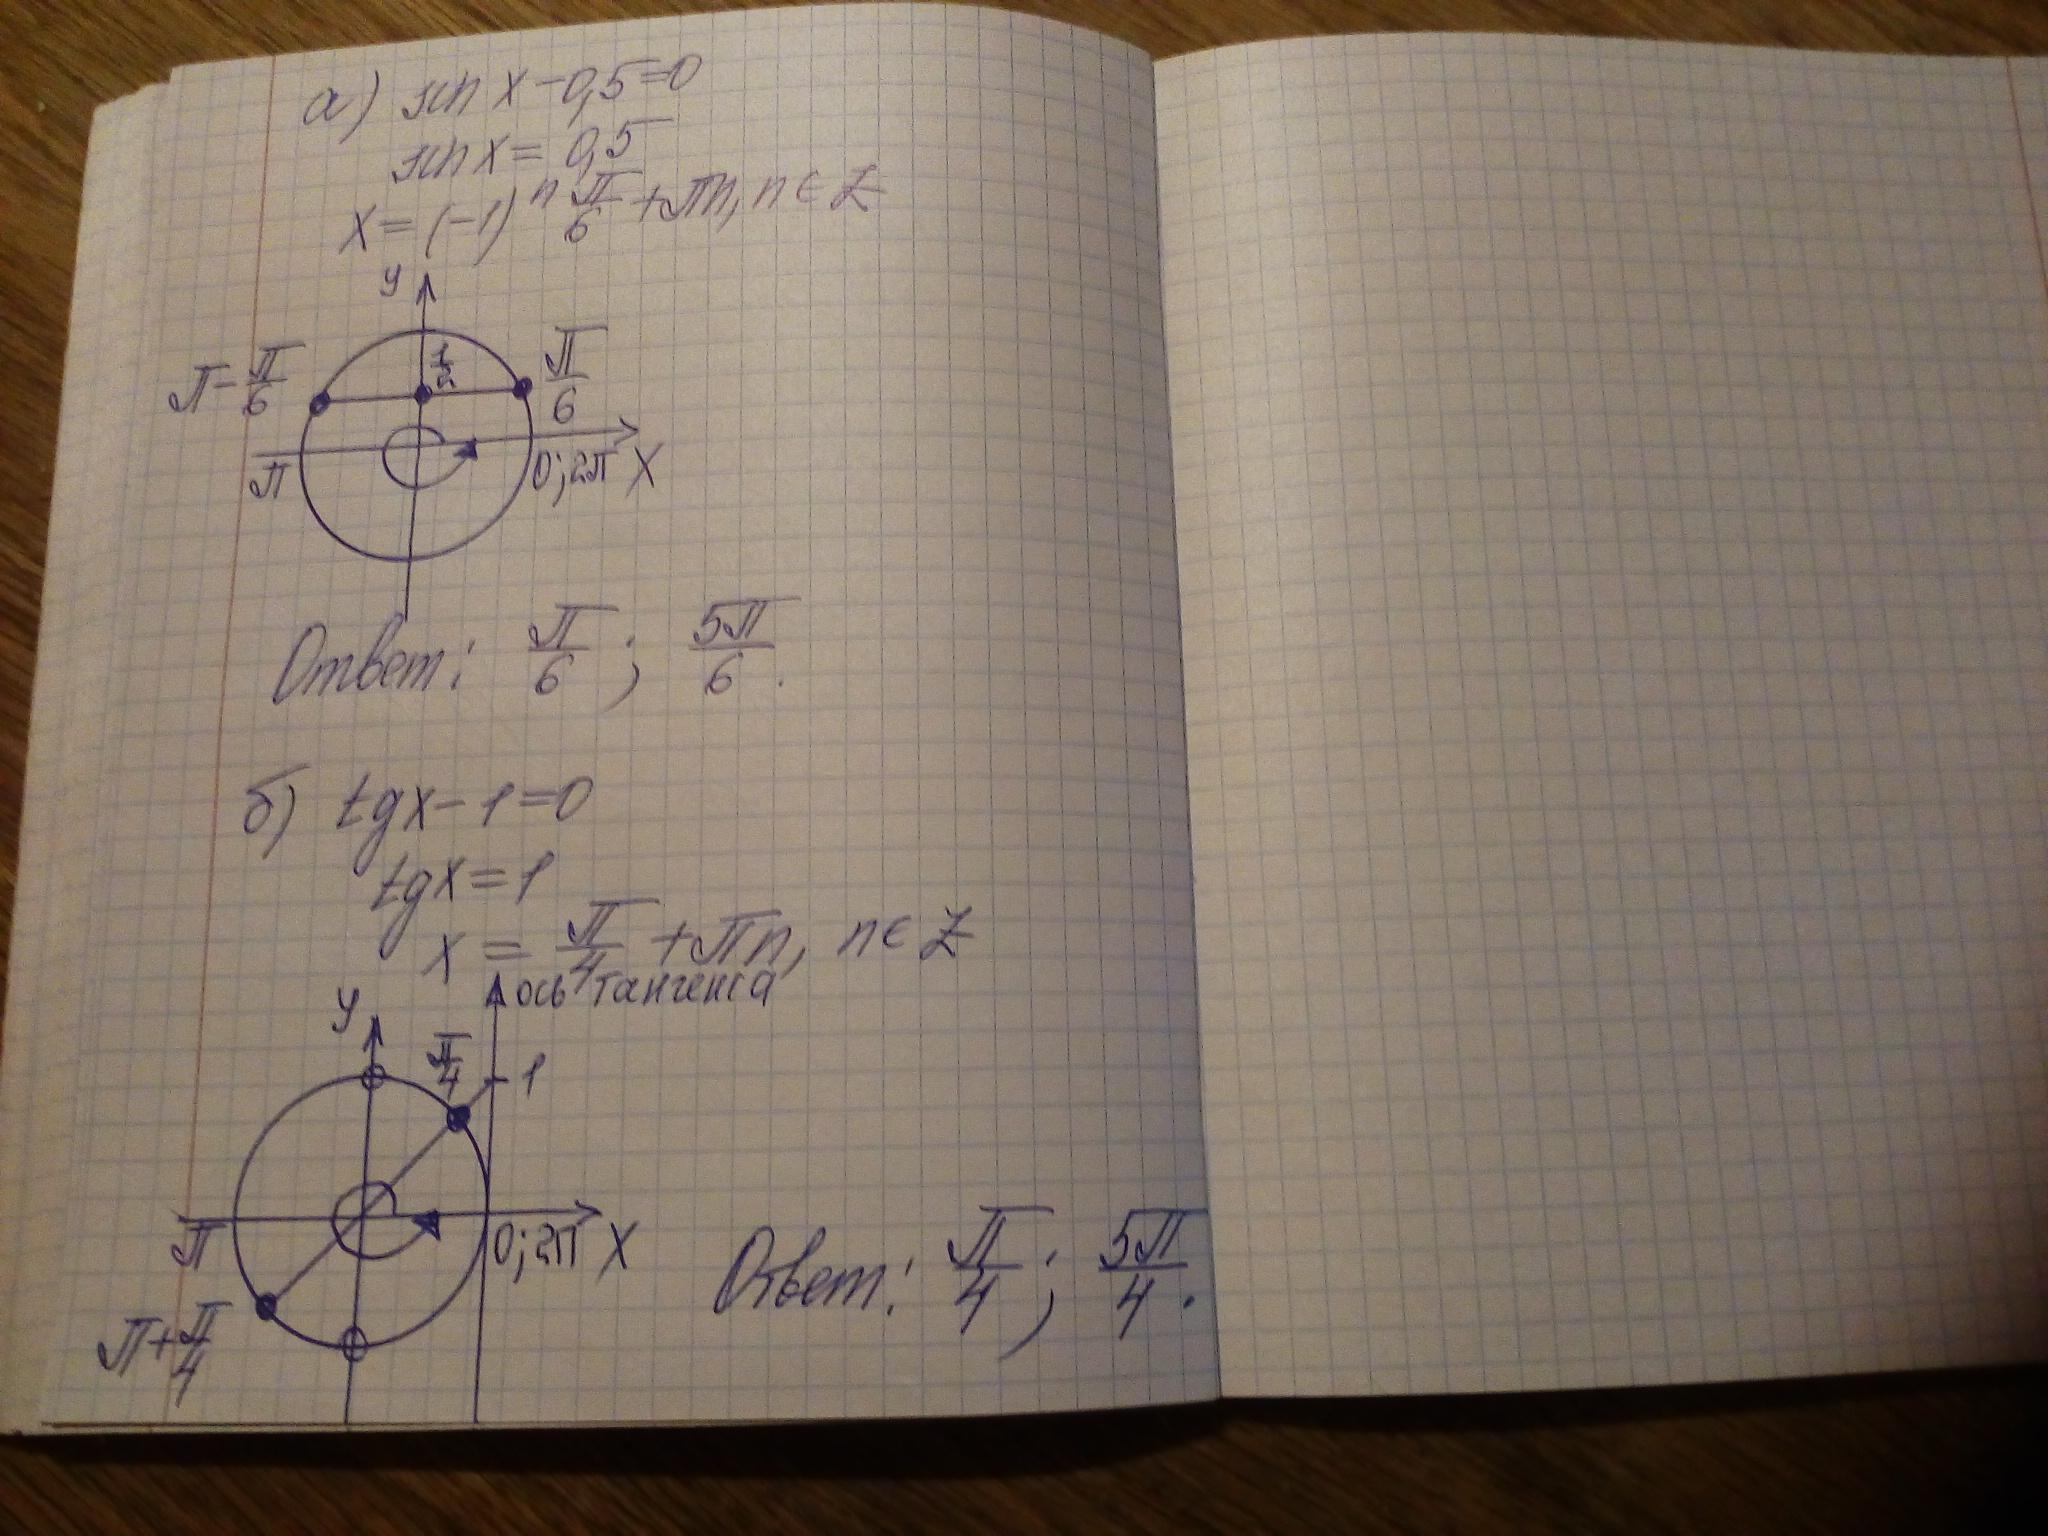 а) sin x - 0,5 = 0
sin x = 0,5
x = (-1)ⁿ π/6 + πn, n ∈ Z
y
π - π/6
1/2
π/6
π
0; 2π
x
Ответ: π/6; 5π/6.
б) tgx - 1 = 0
tgx = 1
x = π/4 + πn, n ∈ Z
ось тангенса
y
π/4
1
π
0; 2π
x
π + π/4
Ответ: π/4; 5π/4.